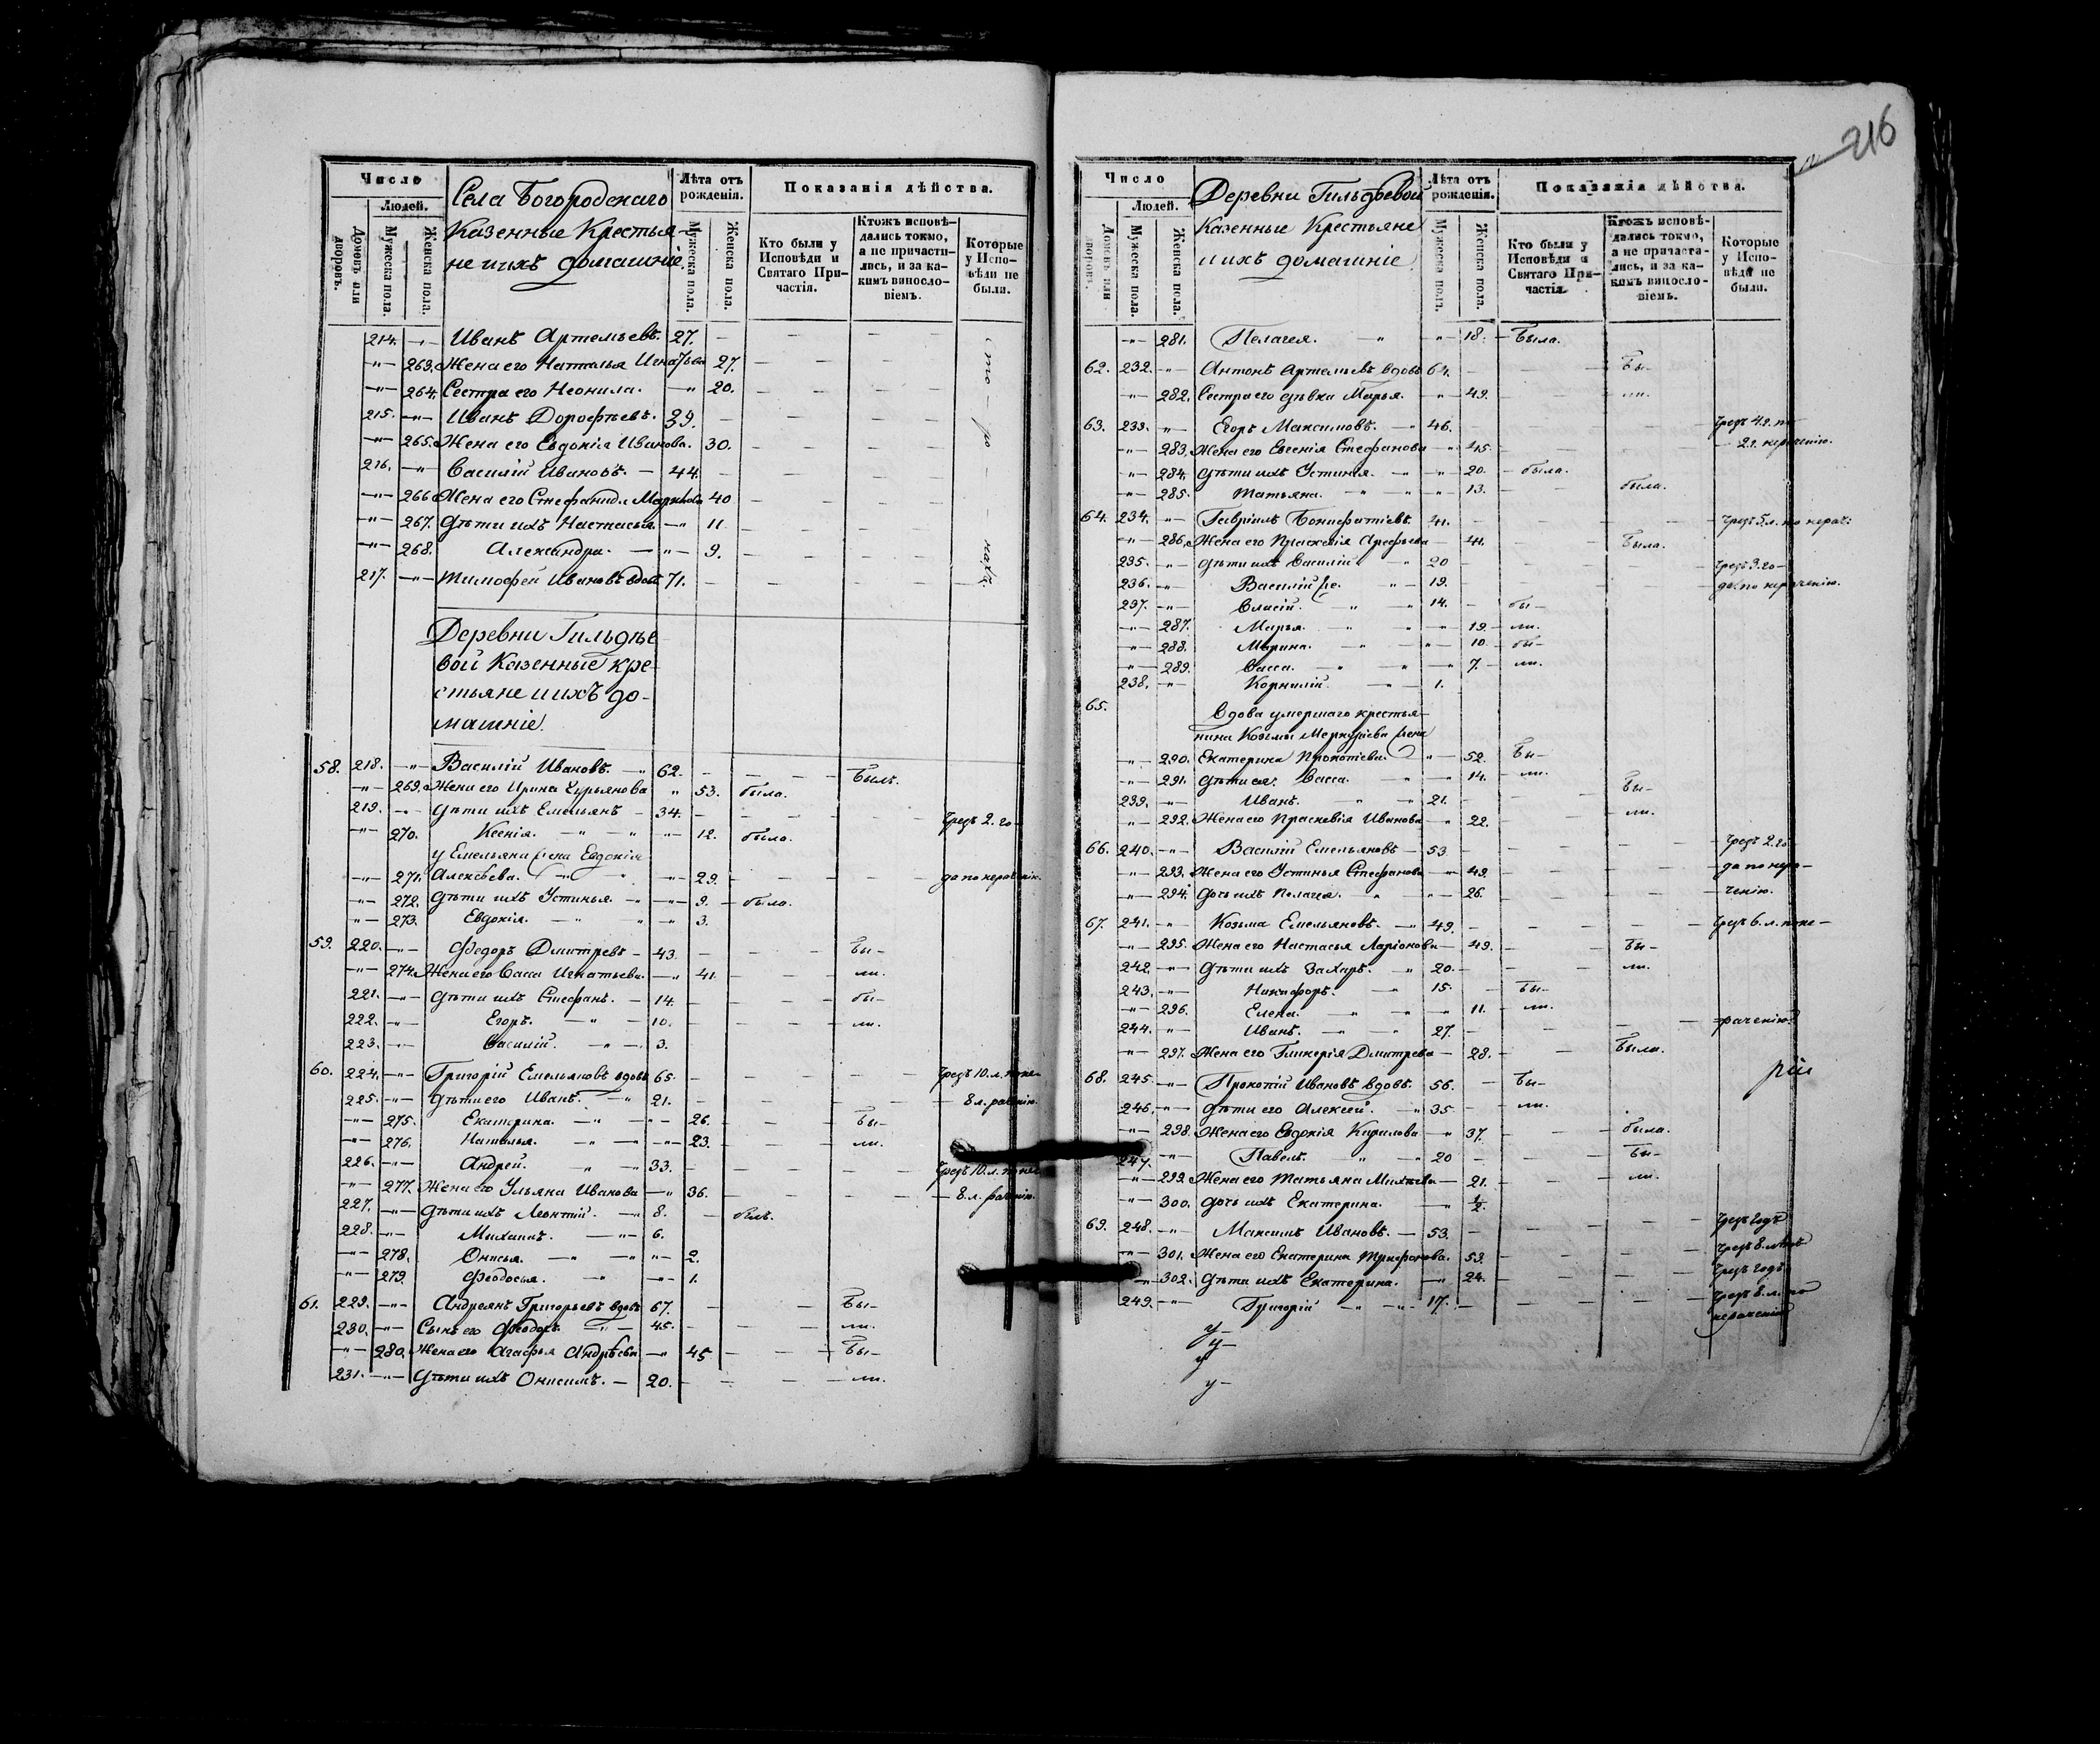 Число
Людей.
Домовъ или дворовъ.
Мужеска пола.
Женска пола.
Села Богородскаго
Казенные Крестья-
не и ихъ домашніе.
Лѣта отъ рожденія.
Мужеска пола.
Женска пола.
Показанія дѣйства.
Кто были у Исповѣди и Святаго Причастія.
Ктожъ исповѣ-
дались токмо,
а не причасти-
лись, и за ка-
кимъ винословіемъ.
Которые у Исповѣди не были.
214. Иванъ Артемьевъ. 27.
263. Жена его Наталья Игнатьева 27.
264. Сестра его Неонила. 20.
215. Иванъ Дорофѣевъ. 39.
265. Жена его Евдокія Иванова. 30.
216. Василій Ивановъ. 44.
266 Жена его Стефанида 40
267. Дѣти ихъ Настасья 11.
268. Александра. 9.
217. Тимофей Ивановъ вдовъ 71.
Деревни Гильдѣе
вой Казенные кре-
стьяне и ихъ до-
машніе.
58. 218. Василій Ивановъ. 62. Былъ.
269. Жена его Ирина Гурьянова 53. была.
219. Дѣти ихъ Емельянъ 34. Чрезъ 2. го-
270. Ксенія. 12. была.
у Емельяна жена Евдокія
271. Алексѣева. 29. да по нерачен.
272. Дѣти ихъ Устинья. 9. была.
273. Евдокія. 3.
59. 220. Федоръ Дмитревъ 43. Бы-
274. Жена его Васса Игнатьева. 41. ли.
221. Дѣти ихъ Стефанъ. 14. бы-
222. Егоръ. 10. ли.
223. Василій. 3.
60. 224. Григорій Емельяновъ вдовъ 65. Чрезъ 10. л. по не-
225. Дѣти его Иванъ. 21. 8 л. рачен.
275. Екатерина. 26. Бы-
276. Наталья. 23. ли.
226. Андрей. 33. Чрезъ 10. л. по не-
277. Жена его Ульяна Иванова 36. 8. л. рачен.
227. Дѣти ихъ Леонтій. 8. былъ.
228. Михаилъ. 6.
278. Онисья. 2.
279. Феодосья. 1.
61. 229. Андреянъ Григорьевъ вдовъ 67. Бы-
230. Сынъ его Феодоръ. 45. ли.
280. Жена его Агафья Андрѣева 45 Бы-
231. Дѣти ихъ Онисимъ. 20. ли.
216
Число
Людей.
Домовъ или дворовъ.
Мужеска пола.
Женска пола.
Деревни Гильдѣевой
Казенные Крестьяне
и ихъ домашніе.
Лѣта отъ рожденія.
Мужеска пола.
Женска пола.
Показанія дѣйства.
Кто были у Исповѣди и Святаго Причастія.
Ктожъ исповѣ-
дались токмо,
а не причаста-
лись, и за ка-
кимъ винословіемъ.
Которые у Исповѣди не были.
281. Пелагея. 18. Была.
62. 232. Антонъ Артемьевъ вдовъ 64. Бы-
282. Сестра его дѣвка Марья. 49. ли.
63. 233. Егоръ Максимовъ. 46. Чрезъ 4. г. по
283. Жена его Евгенія Стефанова 45. 2 г. нераченію.
284. Дѣти ихъ Устинія. 20. была.
285. Татьяна. 13. была.
64. 234. Гавріилъ Бонифатіевъ. 41. Чрезъ 5. л. по нерач:
286. Жена его Праскевія Арефьева 41. Была.
235. Дѣти ихъ Василій 20 Чрезъ 3. го-
236. Василій же. 19. да по нераченію.
237. Власій. 14. бы-
287. Марья. 19. ли.
288. Марина. 10. бы-
289. Васса. 7. ли.
238. Корнилій. 1.
65. Вдова умершаго крестья-
нина Козмы Меркурьева жена
290. Екатерина Прокопіева. 52. Бы-
291. Дѣти ея: Васса. 14. ли.
239. Иванъ. 21. Бы-
292. Жена его Праскевія Иванова 22. ли.
66. 240. Василій Емельяновъ 53. Чрезъ 2. го-
293. Жена его Устинья Стефанова 49. да по нера-
294. Дочь ихъ Пелагея. 26. ченію.
67. 241. Козьма Емельяновъ. 49. Чрезъ 6. л. по не-
295. Жена его Настасья Ларіонова 49. Бы-
242. Дѣти ихъ Захаръ. 20. ли.
243. Никифоръ. 15. Бы-
296. Елена. 11. ли.
244. Иванъ. 27. раченію.
297. Жена его Гликерія Дмитрева 28. Была.
68. 245. Прокопій Ивановъ вдовъ. 56. Бы-
246. Дѣти его Алексѣй. 35. ли.
298. Жена его Евдокія Кирилова 37. была.
247. Павелъ. 20 Бы-
299. Жена его Татьяна 21. ли.
300. Дочь ихъ Екатерина. ½.
69. 248. Максимъ Ивановъ. 53. Чрезъ годъ
301. Жена его Екатерина Трифонова. 53. Чрезъ 8. лѣтъ
302. Дѣти ихъ Екатерина. 24. Чрезъ годъ
249. Григорій 17. Чрезъ 8. л. по
нераченію